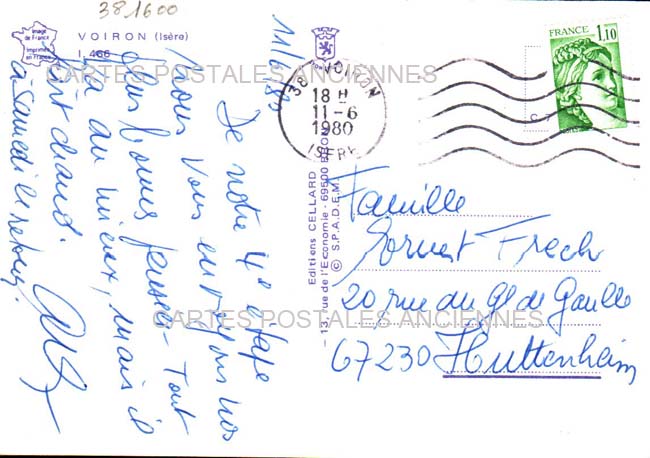 381600
Image de France
Imprimée en France
VOIRON (Isère)
I. 466
11/6/80
De notre 4e étape
nous vous envoyons nos
plus bonnes pensées - Tout
va au mieux, mais il
fait chaud.
à samedi le retour.
Editions CELLARD
13, rue de l'Economie - 69500 BRON
© S.P.A.D.E.M.
38 VOIRON
18 H
11-6
1980
ISERE
FRANCE
1,10
Famille
Frech
20 rue du Gl de Gaulle
67230 Huttenheim
CARTES POSTALES ANCIENNES
CARTES POSTALES ANCIENNES